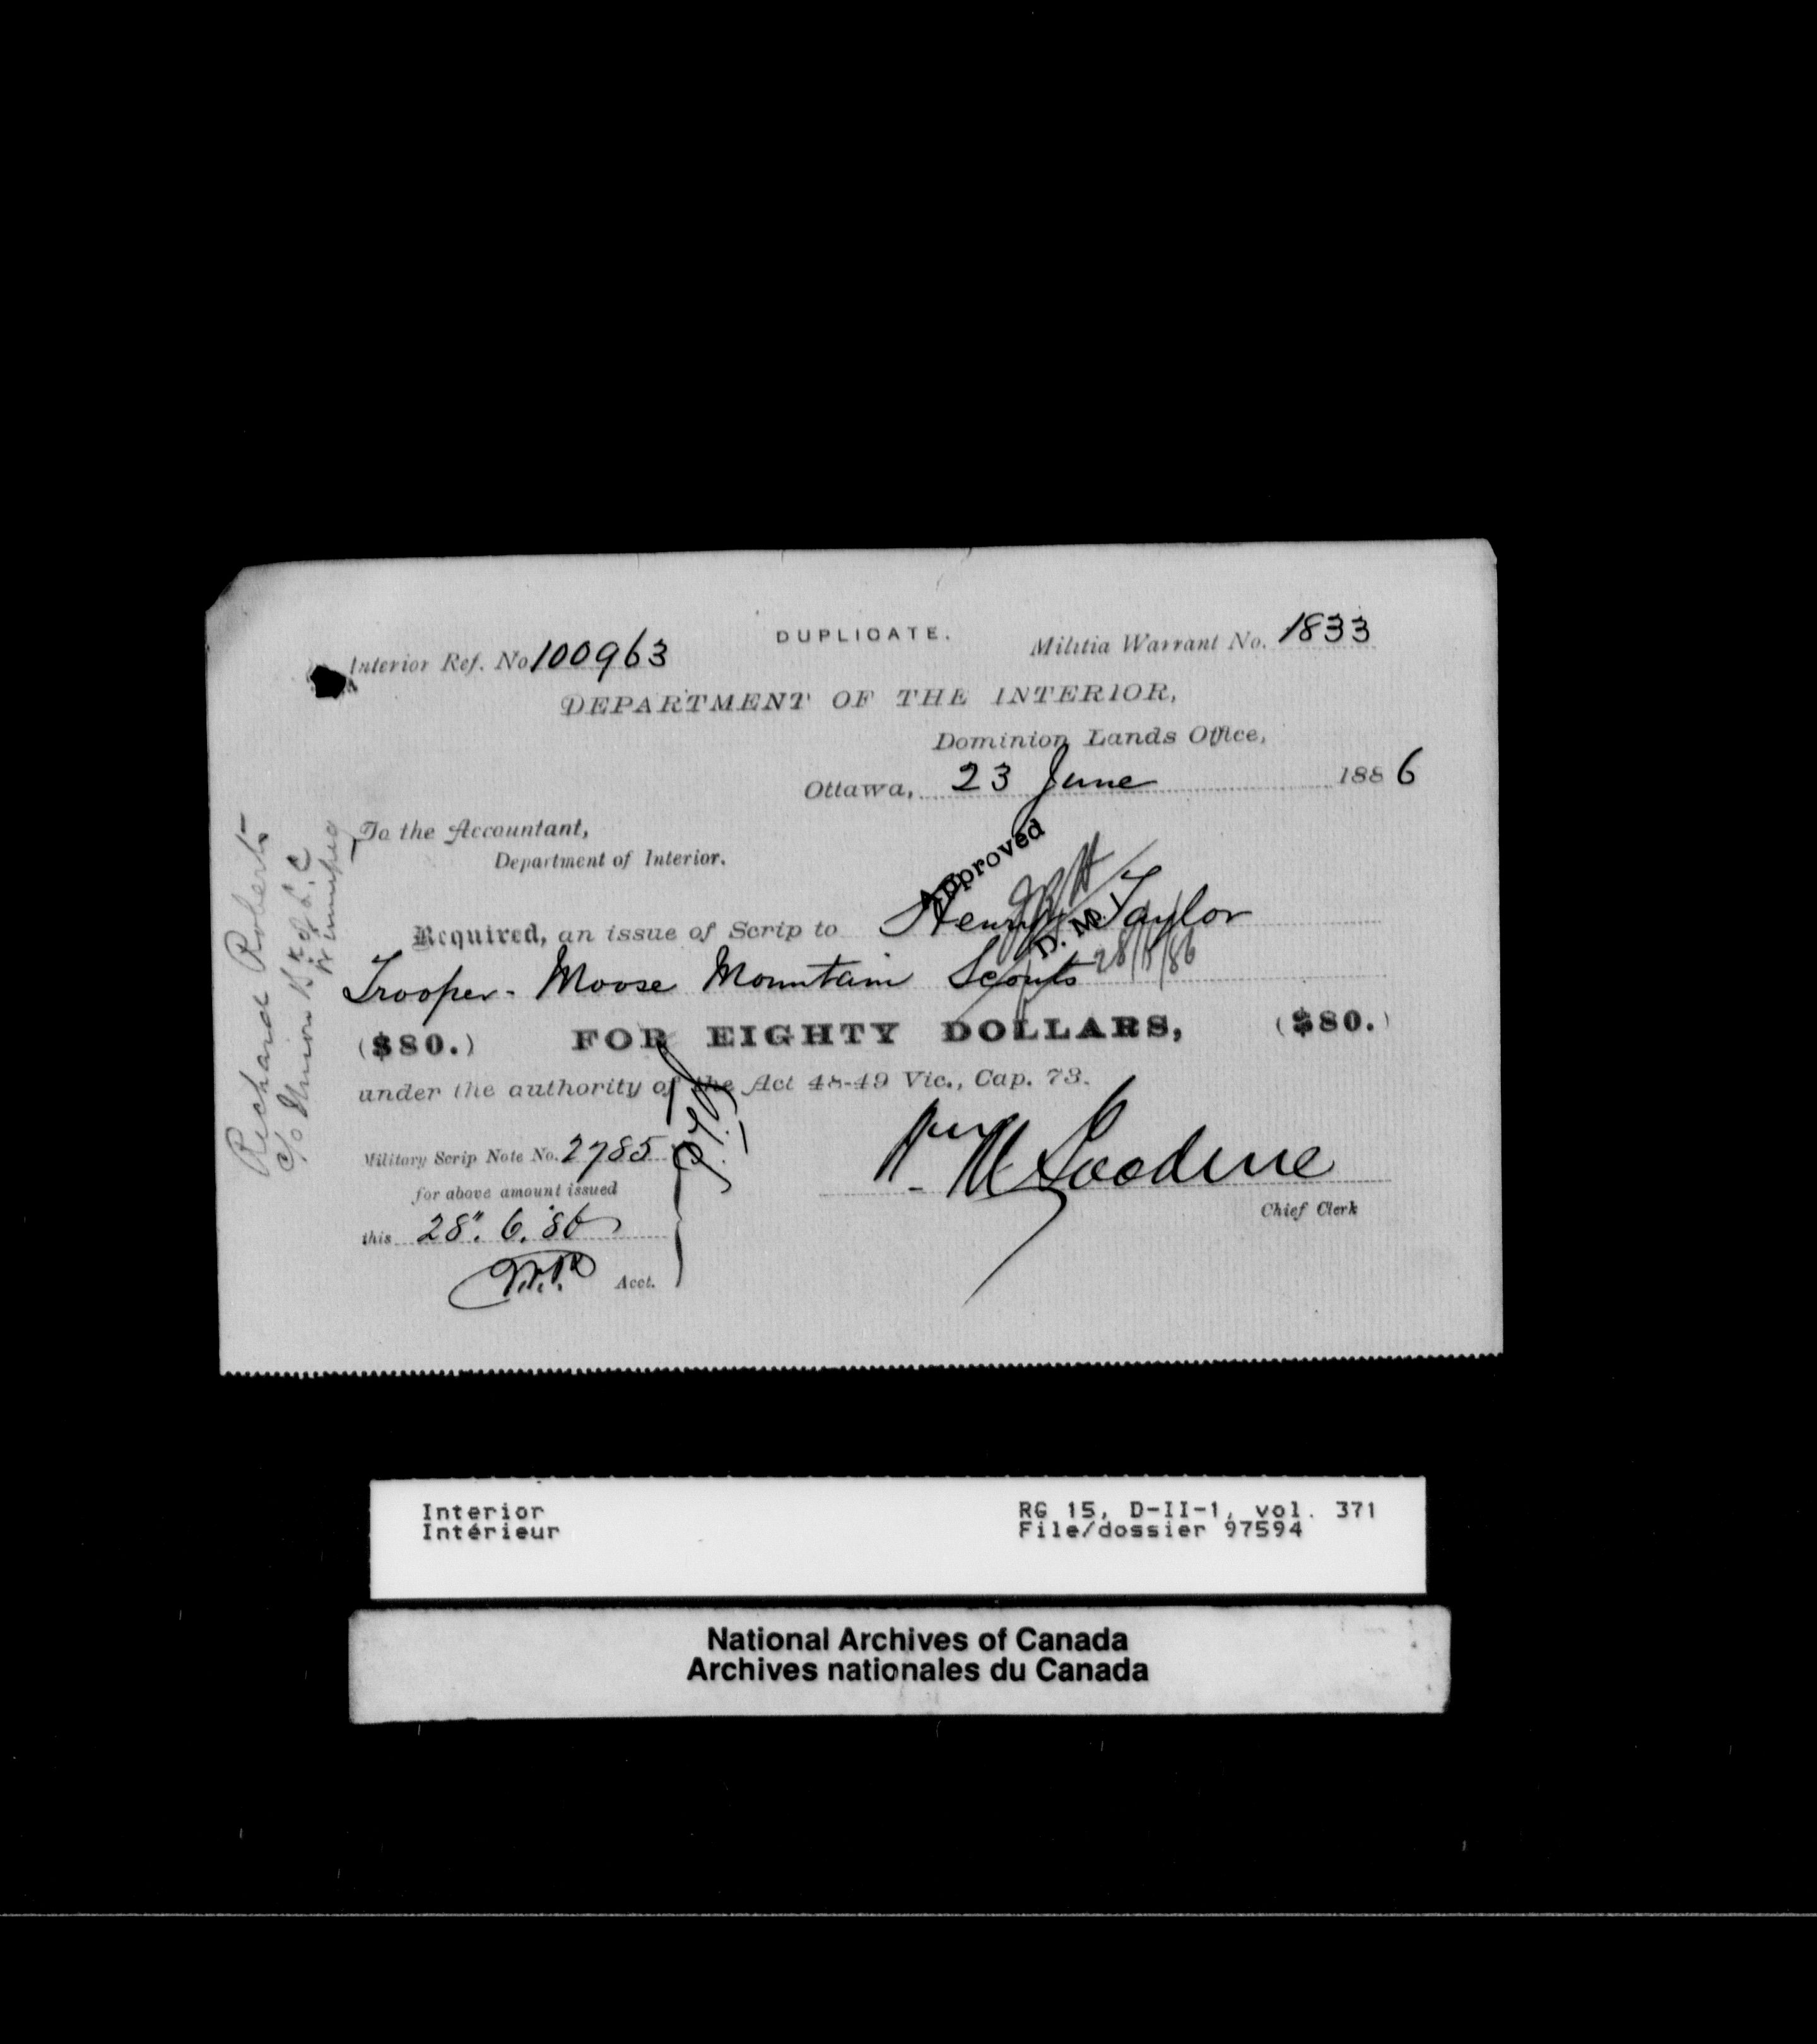 DUPLICATE.
Interior Ref. No 100963
Militia Warrant No. 1833
DEPARTMENT OF THE INTERIOR,
Dominion Lands Office,
Ottawa, 23 June 1886
To the Accountant,
Department of Interior.
Approved
D. M. I.
Required, an issue of Scrip to Henry Taylor
Trooper - Moose Mountain Scouts
($80.) FOR EIGHTY DOLLARS, ($80.)
under the authority of the Act 48-49 Vic., Cap. 73.
Military Scrip Note No. 2785
for above amount issued
this 28". 6. '86
Acct.
Chief Clerk
Richard Roberts
c/o Union Bk of L. C
Winnipeg
Interior
Intérieur
RG 15, D-II-1, vol. 371
File/dossier 97594
National Archives of Canada
Archives nationales du Canada